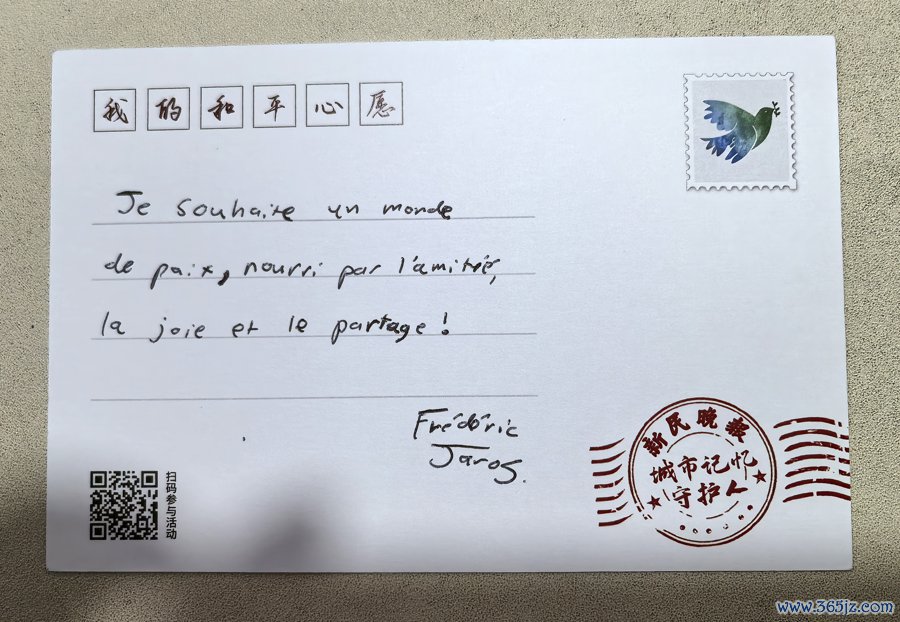 我的和平心愿
Je souhaite un monde
de paix, nourri par l'amitié,
la joie et le partage !
Frédéric
Jaros.
扫码参与活动
新民晚报
城市记忆
守护人
www.365jz.com